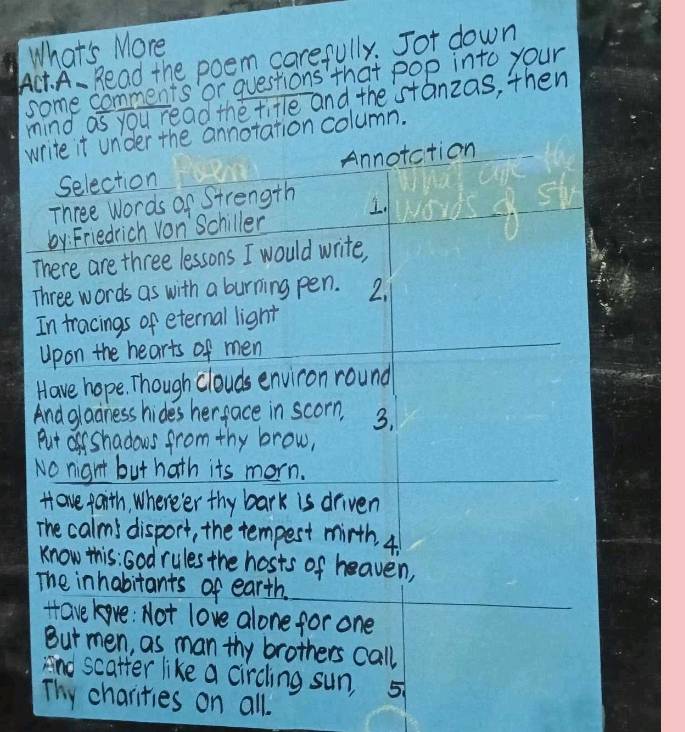 What's More
Act.A- Read the poem carefully. Jot down
some comments or questions that pop into your
mind as you read the title and the stanzas, then
write it under the annotation column.
Selection Poem Annotation
Three Words of Strength 1. What are the
by: Friedrich Von Schiller words of
There are three lessons I would write,
Three words as with a burning pen. 2.
In tracings of eternal light
Upon the hearts of men
Have hope. Though clouds environ round
And gladness hides her face in scorn, 3.
Put off shadows from thy brow,
No night but hath its morn.
Have faith, Where'er thy bark is driven
The calm's disport, the tempest mirth, 4.
Know this: God rules the hosts of heaven,
The inhabitants of earth.
Have love: Not love alone for one
But men, as man thy brothers call
And scatter like a circling sun, 5.
Thy charities on all.